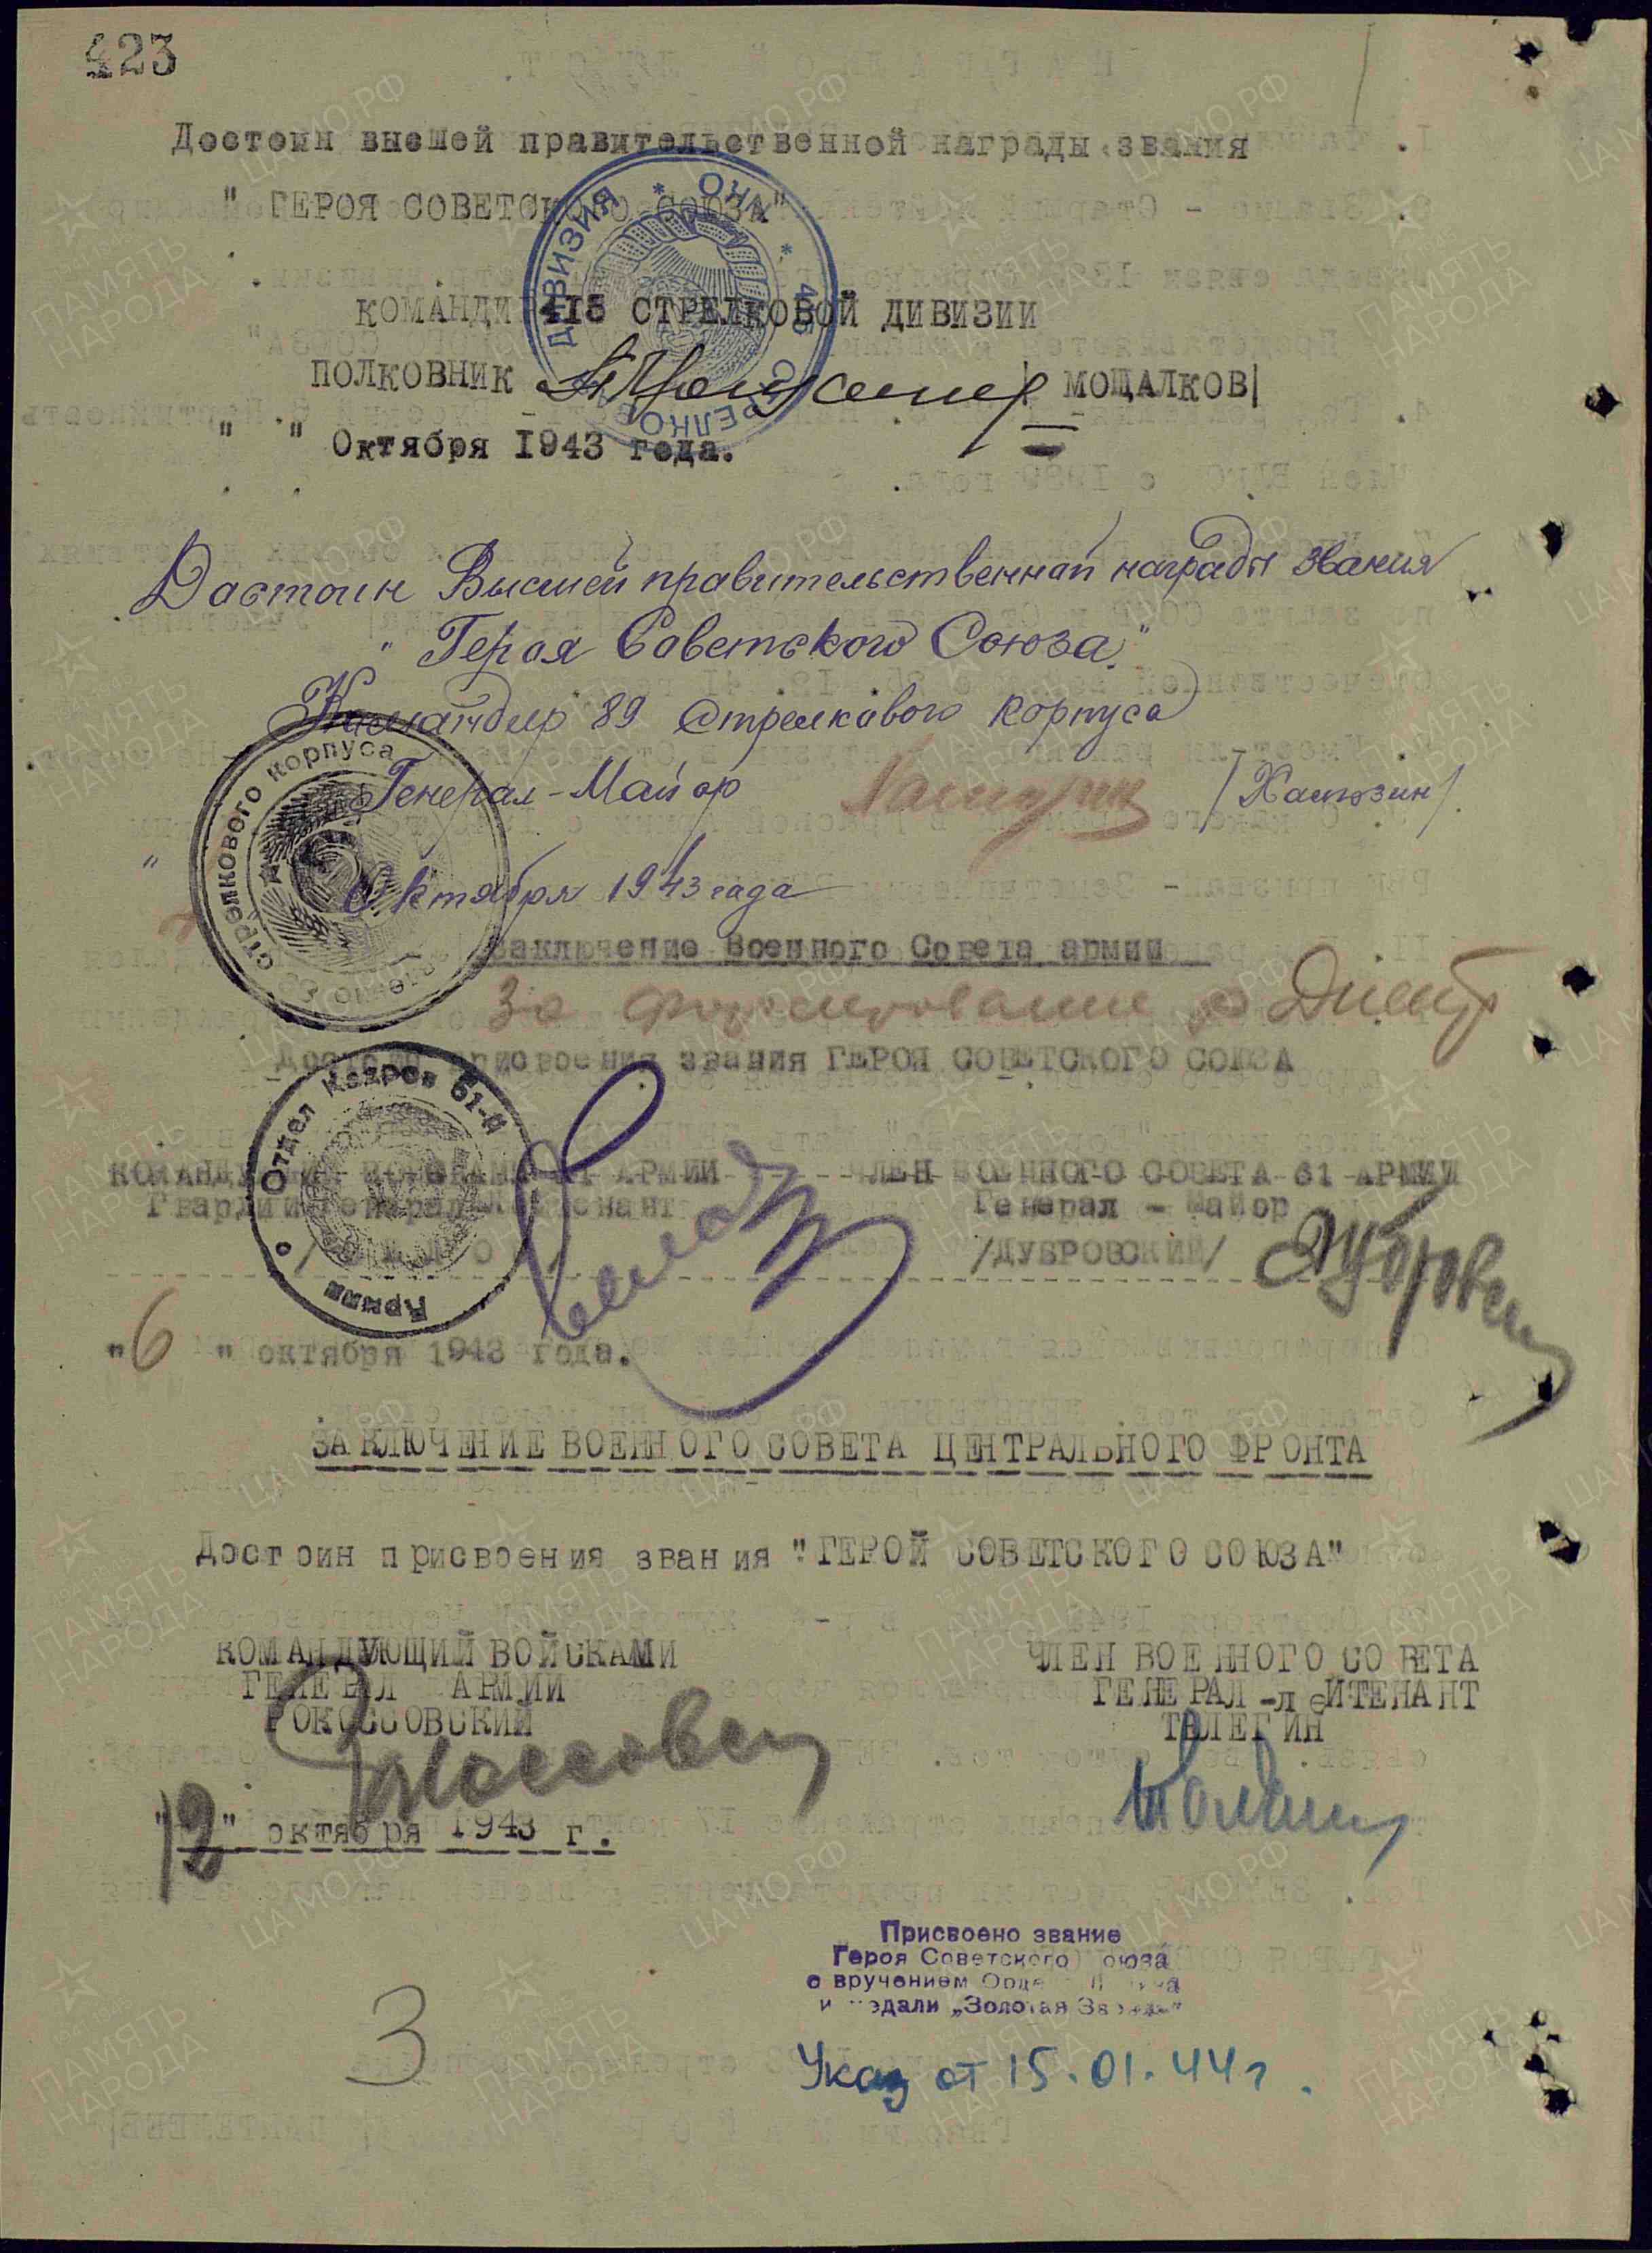 423
Достоин внсшей правительственной награды звания
" ГЕРОЯ СОВЕТСКОГО СОЮЗА"
КОМАНДИР 415 СТРЕЛКОВОЙ ДИВИЗИИ
ПОЛКОВНИК | МОЩАЛКОВ|
" " Октября 1943 года.
Достоин Высшей правительственной награды звания
"Героя Советского Союза"
Командир 89 Стрелкового Корпуса
Генерал-Майор /Хамозин/.
" Октября 1943 года
Заключение Военного Совета армии
За форсирование р Днепр
Достоин присвоения звания ГЕРОЯ СОВЕТСКОГО СОЮЗА
КОМАНДУЮЩИЙ ВОЙСКАМИ 61 АРМИИ ЧЛЕН ВОЕННОГО СОВЕТА 61 АРМИИ
Гвардии генерал-лейтенант Генерал - Майор
/ДУБРОВСКИЙ/
"6" октября 1943 года.
ЗАКЛЮЧЕНИЕ ВОЕННОГО СОВЕТА ЦЕНТРАЛЬНОГО ФРОНТА
Достоин присвоения звания "ГЕРОЙ СОВЕТСКОГО СОЮЗА"
КОМАНДУЮЩИЙ ВОЙСКАМИ ЧЛЕН ВОЕННОГО СОВЕТА
ГЕНЕРАЛ АРМИИ ГЕНЕРАЛ-лЕЙТЕНАНТ
РОКОССОВСКИЙ ТЕЛЕГИН
"12" октября 1943 г.
Присвоено звание
Героя Советского Союза
с вручением Ордена Ленина
и медали „Золотая Звезда"
3
Указ от 15.01.44г.